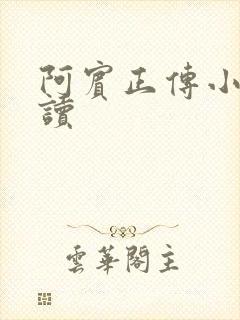 阿賓正傳小
讀
雲華閣主